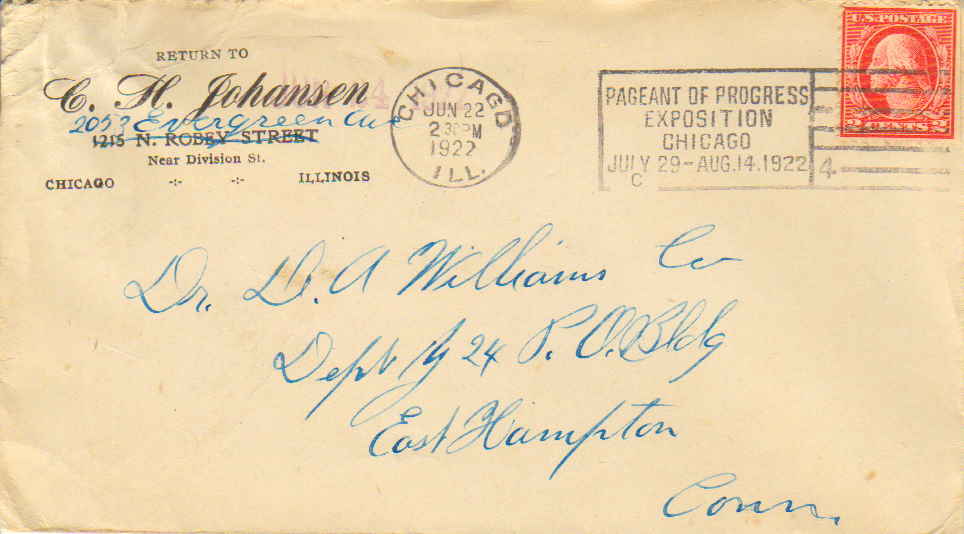 RETURN TO
C. H. Johansen
2053 Evergreen Ave
1215 N. ROBEY STREET
Near Division St.
CHICAGO -:- -:- ILLINOIS
CHICAGO
JUN 22
2 30 PM
1922
ILL.
PAGEANT OF PROGRESS
EXPOSITION
CHICAGO
JULY 29-AUG.14.1922
C
4
U.S. POSTAGE
2 CENTS 2
Dr. D. A Williams Co
Dept 24 P. O. Bldg
East Hampton
Conn.